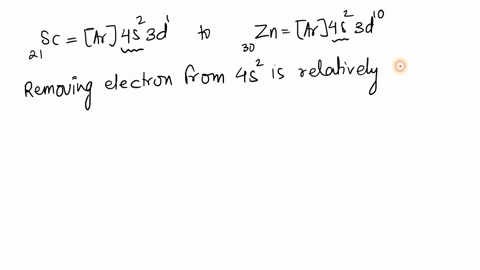 ₂₁Sc = [Ar] 4s² 3d¹ to ₃₀Zn = [Ar] 4s² 3d¹⁰
Removing electron from 4s² is relatively